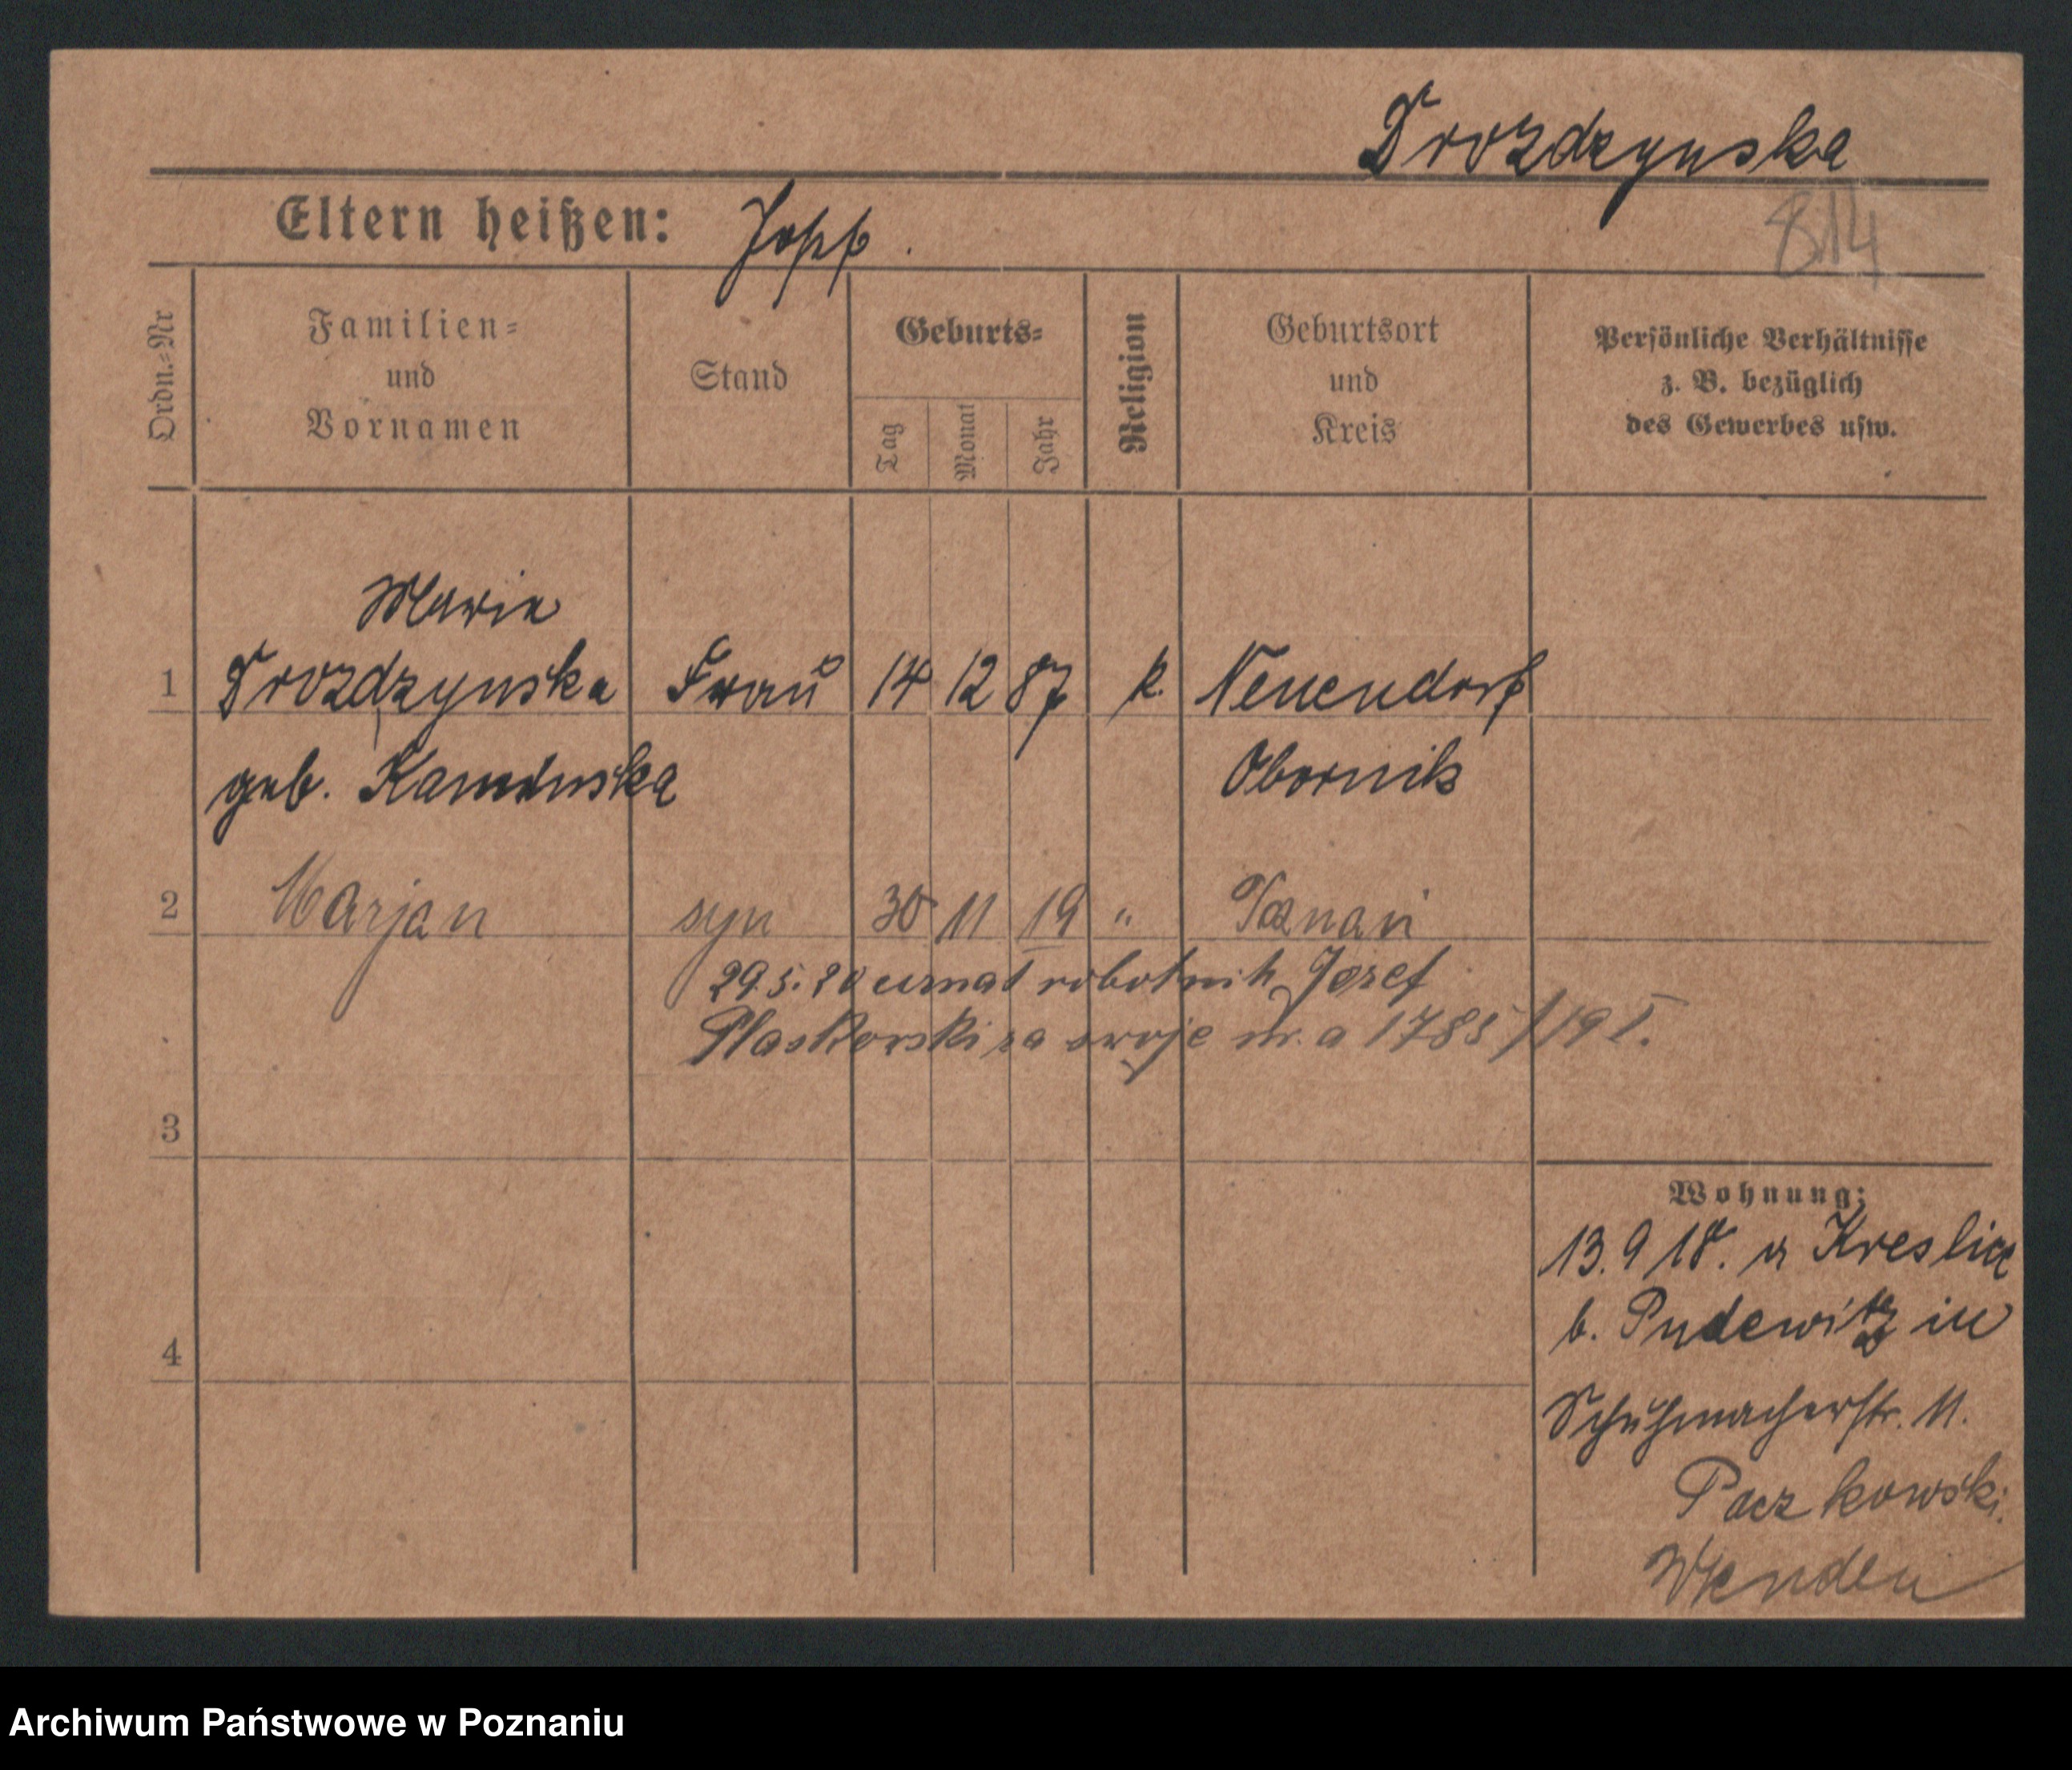 Drozdzynska
Eltern heißen: Jopp.
814
Ordn.=Nr
Familien=
und
Vornamen
Stand
Geburts=
Tag
Monat
Jahr
Religion
Geburtsort
und
Kreis
Persönliche Verhältnisse
z. B. bezüglich
des Gewerbes usw.
Marie
1 Drozdzynska Frau 14 12 87 k. Neuendorf
geb. Kaminska Obornik
2 Marjan syn 30 11 19 " Poznań
29.5.20 uznał robotnik Józef
za swoje nr. a 1785/19 I.
3
Wohnung:
13.9 18. a
b. Pudewitz in
4
Schuhmacherstr. 11.
Paczkowski.
Wenden
Archiwum Państwowe w Poznaniu